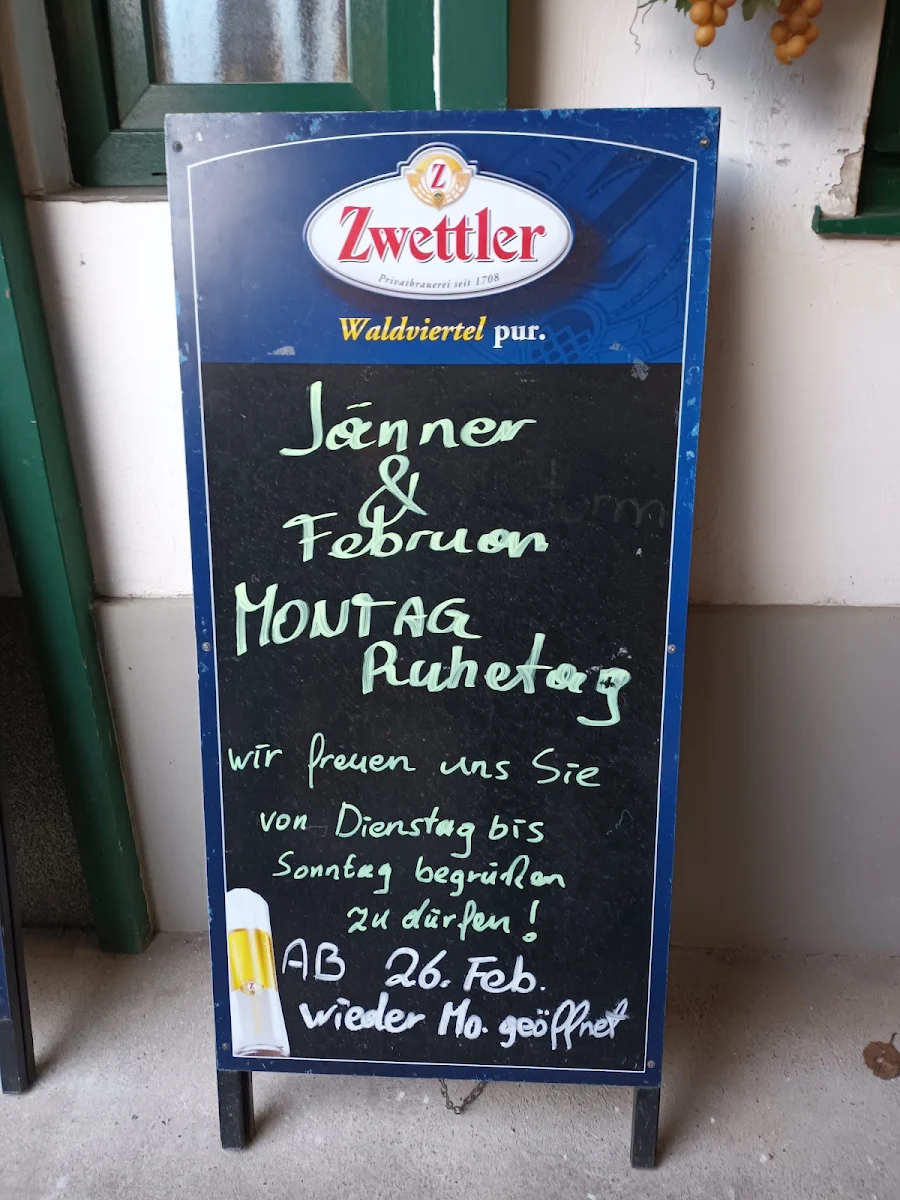 Z
Zwettler
Privatbrauerei seit 1708
Waldviertel pur.
Jänner
&
Februar
MONTAG
Ruhetag
wir freuen uns Sie
von Dienstag bis
Sonntag begrüßen
zu dürfen!
AB 26. Feb.
wieder Mo. geöffnet